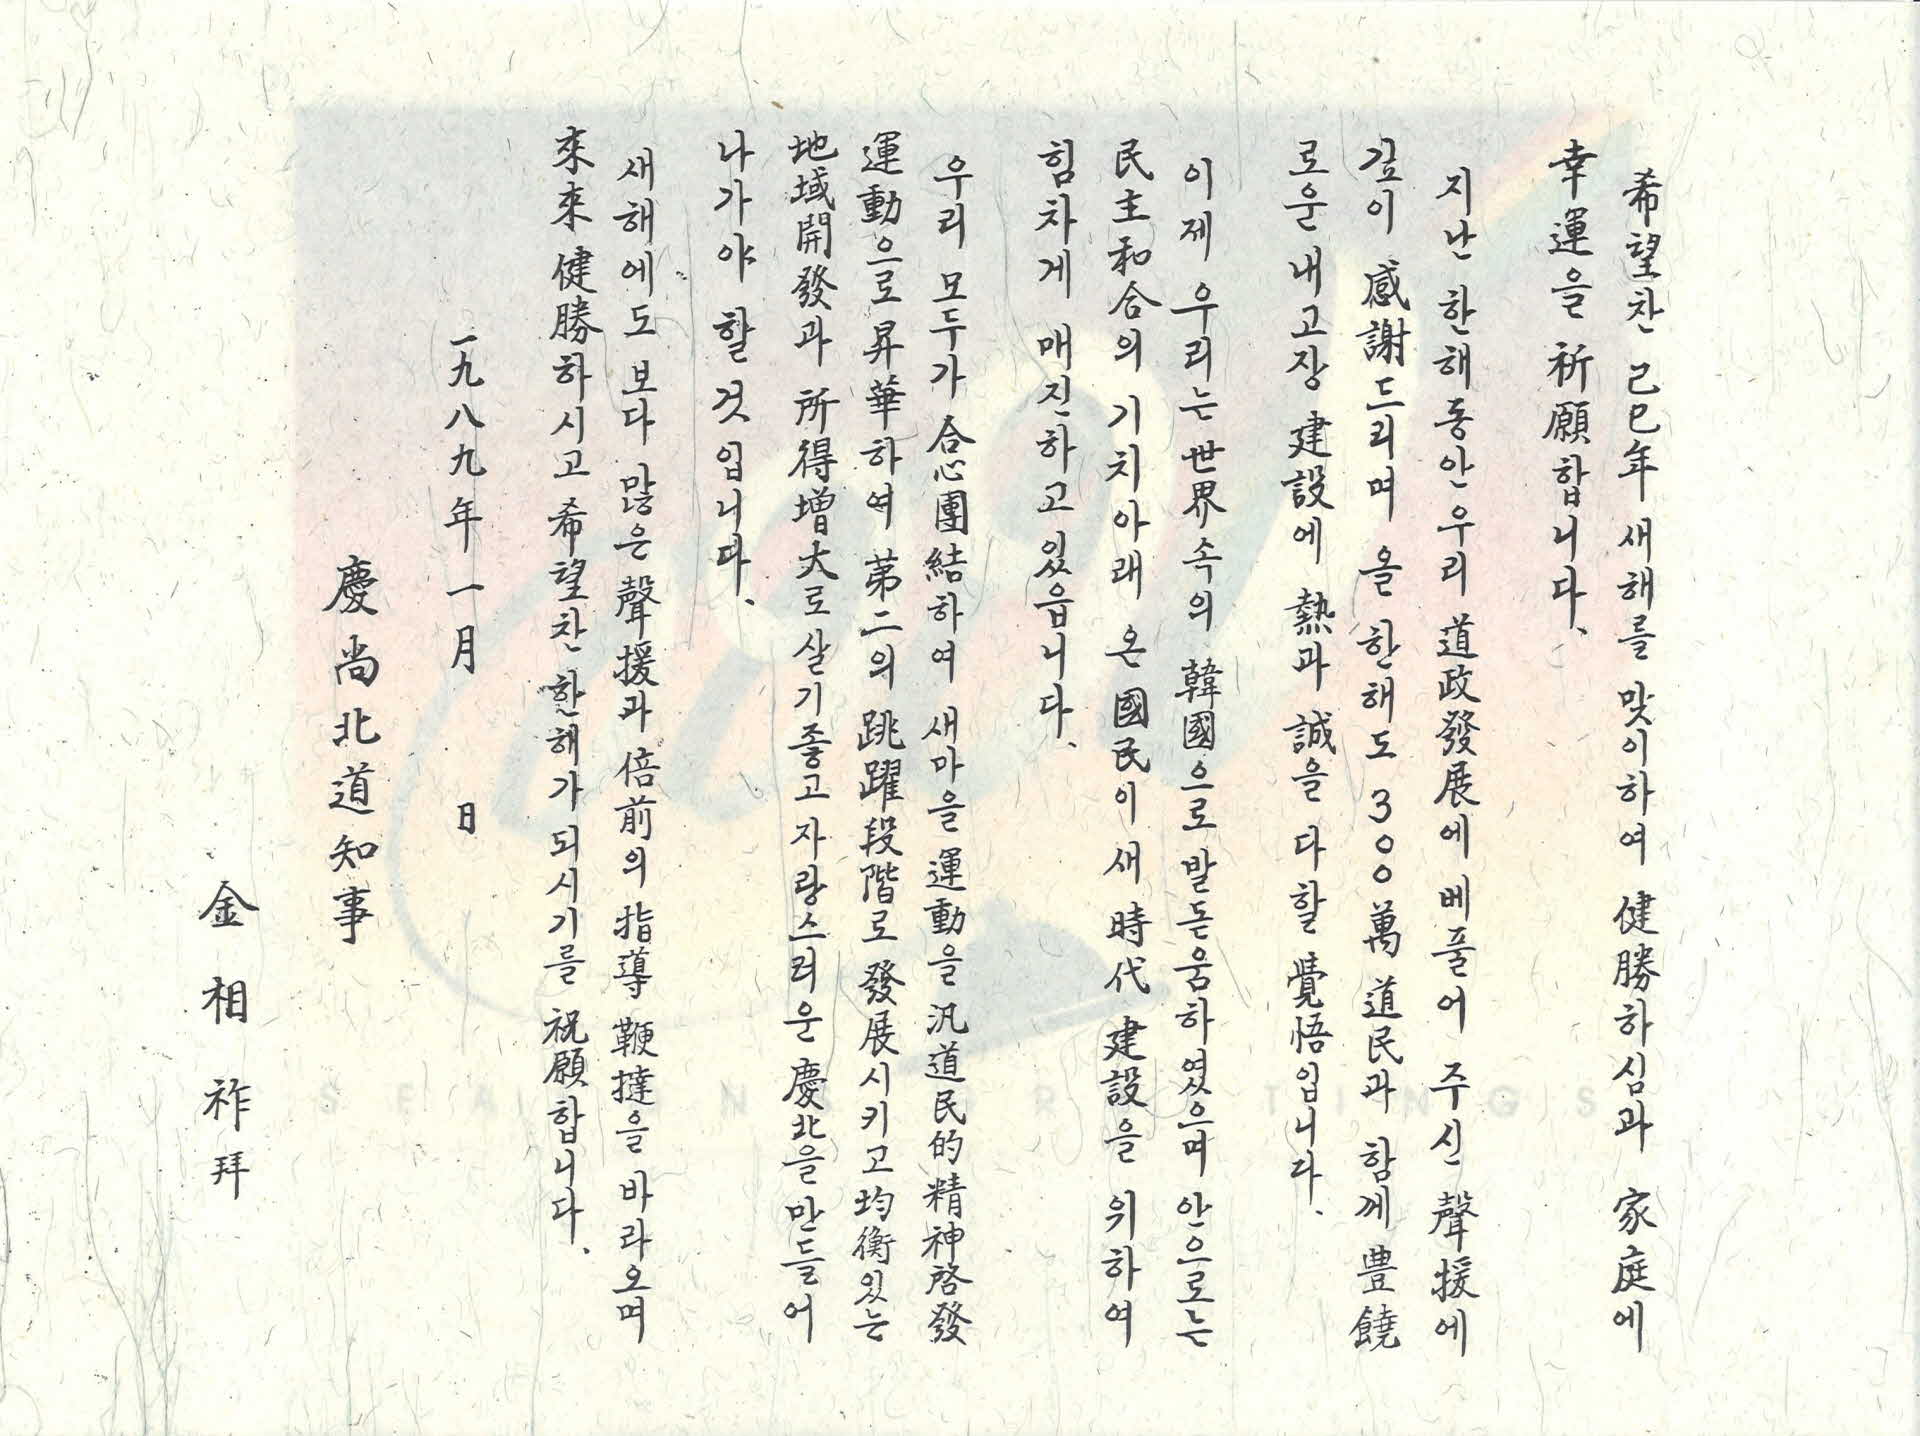 希望찬 己巳年 새해를 맞이하여 健勝하심과 家庭에
幸運을 祈願합니다.
지난 한해동안 우리 道政發展에 베풀어 주신 聲援에
깊이 感謝드리며 올 한해도 300萬 道民과 함께 豊饒
로운 내고장 建設에 熱과 誠을 다할 覺悟입니다.
이제 우리는 世界속의 韓國으로 발돋움하였으며 안으로는
民主和合의 기치아래 온 國民이 새 時代 建設을 위하여
힘차게 매진하고 있읍니다.
우리 모두가 合心團結하여 새마을運動을 汎道民的 精神啓發
運動으로 昇華하여 第二의 跳躍段階로 發展시키고 均衡있는
地域開發과 所得增大로 살기좋고 자랑스러운 慶北을 만들어
나가야 할 것입니다.
새해에도 보다 많은 聲援과 倍前의 指導 鞭撻을 바라오며
來來 健勝하시고 希望찬 한해가 되시기를 祝願합니다.
一九八九年 一月 日
慶尙北道知事
金相祚 拜
SEASONS GREETINGS